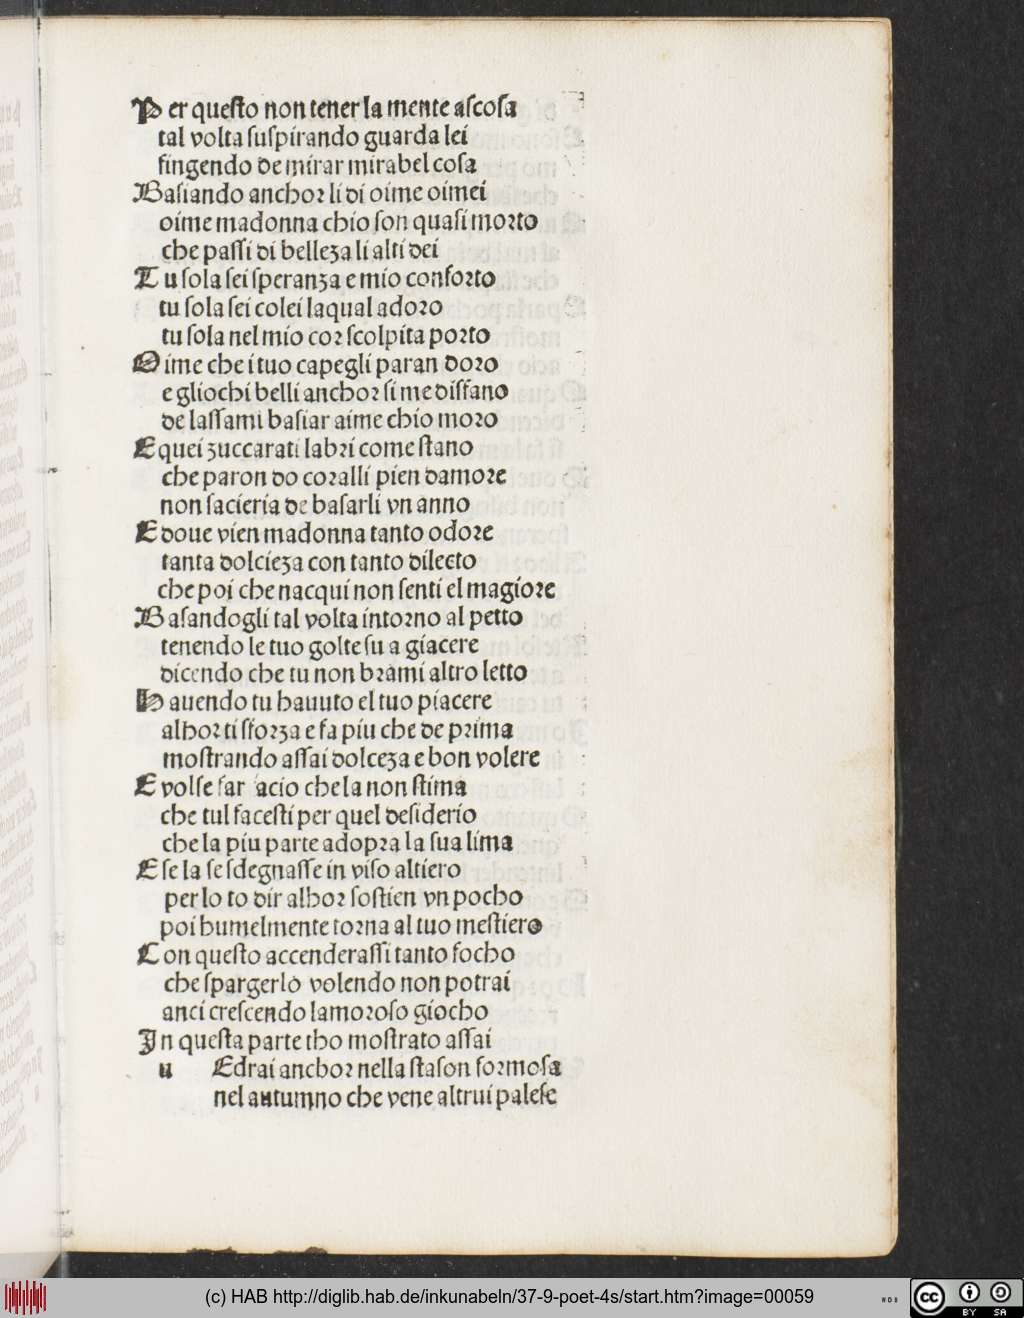 Per questo non tener la mente ascosa
tal volta suspirando guarda lei
fingendo de mirar mirabel cosa
Basiando anchor li di oime oimei
oime madonna chio son quasi morto
che passi di belleza li alti dei
Tu sola sei speranza e mio conforto
tu sola sei colei laqual adoro
tu sola nel mio cor scolpita porto
Oime che i tuo capegli paran doro
e gliochi belli anchor si me disfano
de lassami basiar aime chio moro
E quei zuccarati labri come stano
che paron do coralli pien damore
non sacieria de basarli vn anno
E doue vien madonna tanto odore
tanta dolcieza con tanto dilecto
che poi che nacqui non senti el magiore
Basandogli tal volta intorno al petto
tenendo le tuo golte su a giacere
dicendo che tu non brami altro letto
Hauendo tu hauuto el tuo piacere
alhor ti sforza e fa piu che de prima
mostrando assai dolceza e bon volere
E volse far acio chela non stima
che tul facesti per quel desiderio
che la piu parte adopra la sua lima
E se la se sdegnasse in viso altiero
per lo to dir alhor sostien vn pocho
poi humelmente torna al tuo mestiero
Con questo accenderassi tanto focho
che spargerlo volendo non potrai
anci crescendo lamoroso giocho
In questa parte tho mostrato assai
u Edrai anchor nella stason formosa
nel autumno che vene altrui palese
(c) HAB http://diglib.hab.de/inkunabeln/37-9-poet-4s/start.htm?image=00059
cc BY SA